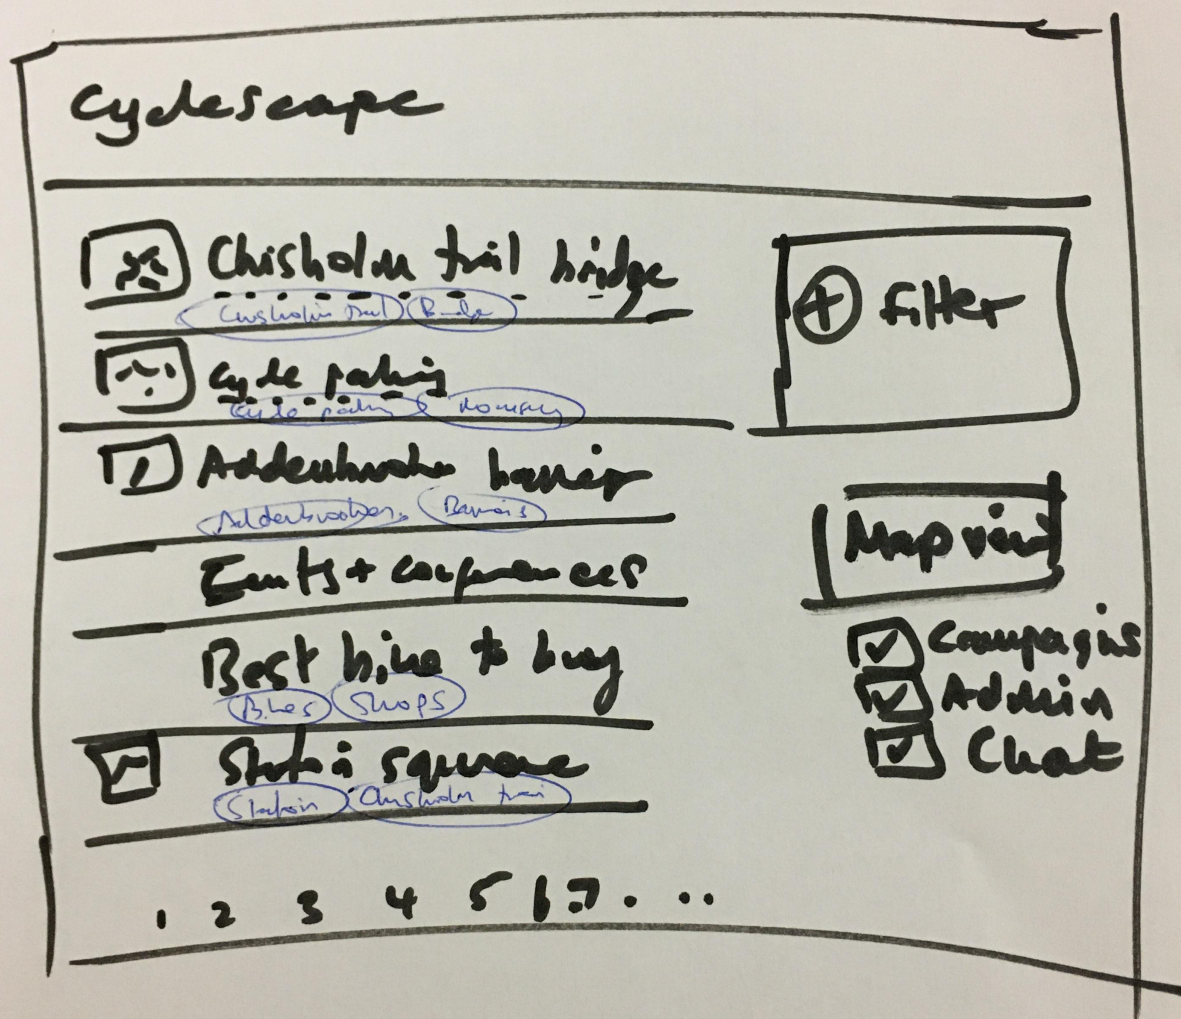 Cyclescape
Chisholm trail bridge
Chisholm trail Bridge
Cycle parking
Cycle parking Romsey
Addenbrookes barrier
Addenbrookes Barriers
Events + conferences
Best bike to buy
Bikes Shops
Station square
Station Chisholm trail
1 2 3 4 5 6 7 . . .
+ Filter
Map view
Campaigns
Admin
Chat